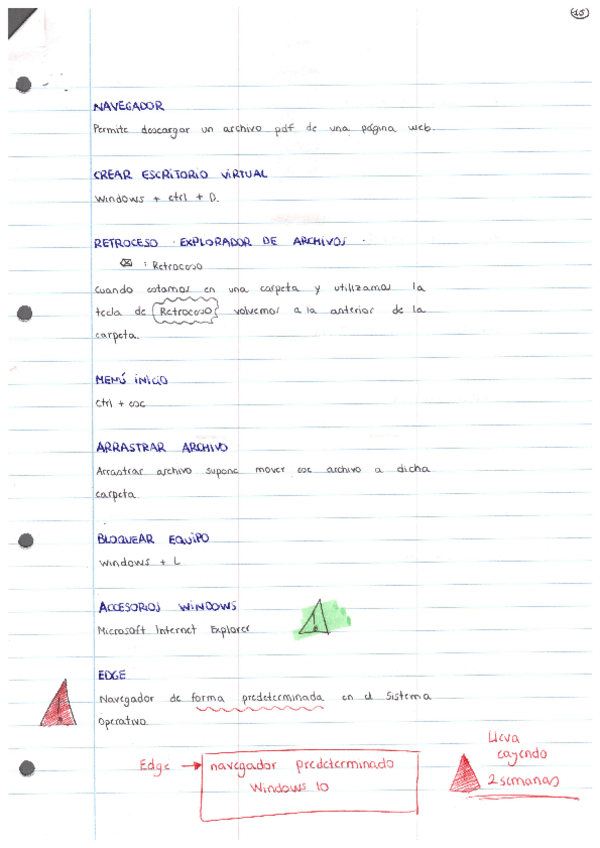 15
NAVEGADOR
Permite descargar un archivo pdf de una página web.
CREAR ESCRITORIO VIRTUAL
Windows + ctrl + D.
RETROCESO · EXPLORADOR DE ARCHIVOS ·
⌫ : Retroceso
Cuando estamos en una carpeta y utilizamos la
tecla de Retroceso volvemos a la anterior de la
carpeta.
MENÚ INICIO
Ctrl + esc
ARRASTRAR ARCHIVO
Arrastrar archivo supone mover ese archivo a dicha
carpeta
BLOQUEAR EQUIPO
Windows + L
ACCESORIOS WINDOWS
Microsoft Internet Explorer
EDGE
Navegador de forma predeterminada en el Sistema
Operativo
Edge → navegador predeterminado
Windows 10
Lleva
cayendo
2 semanas